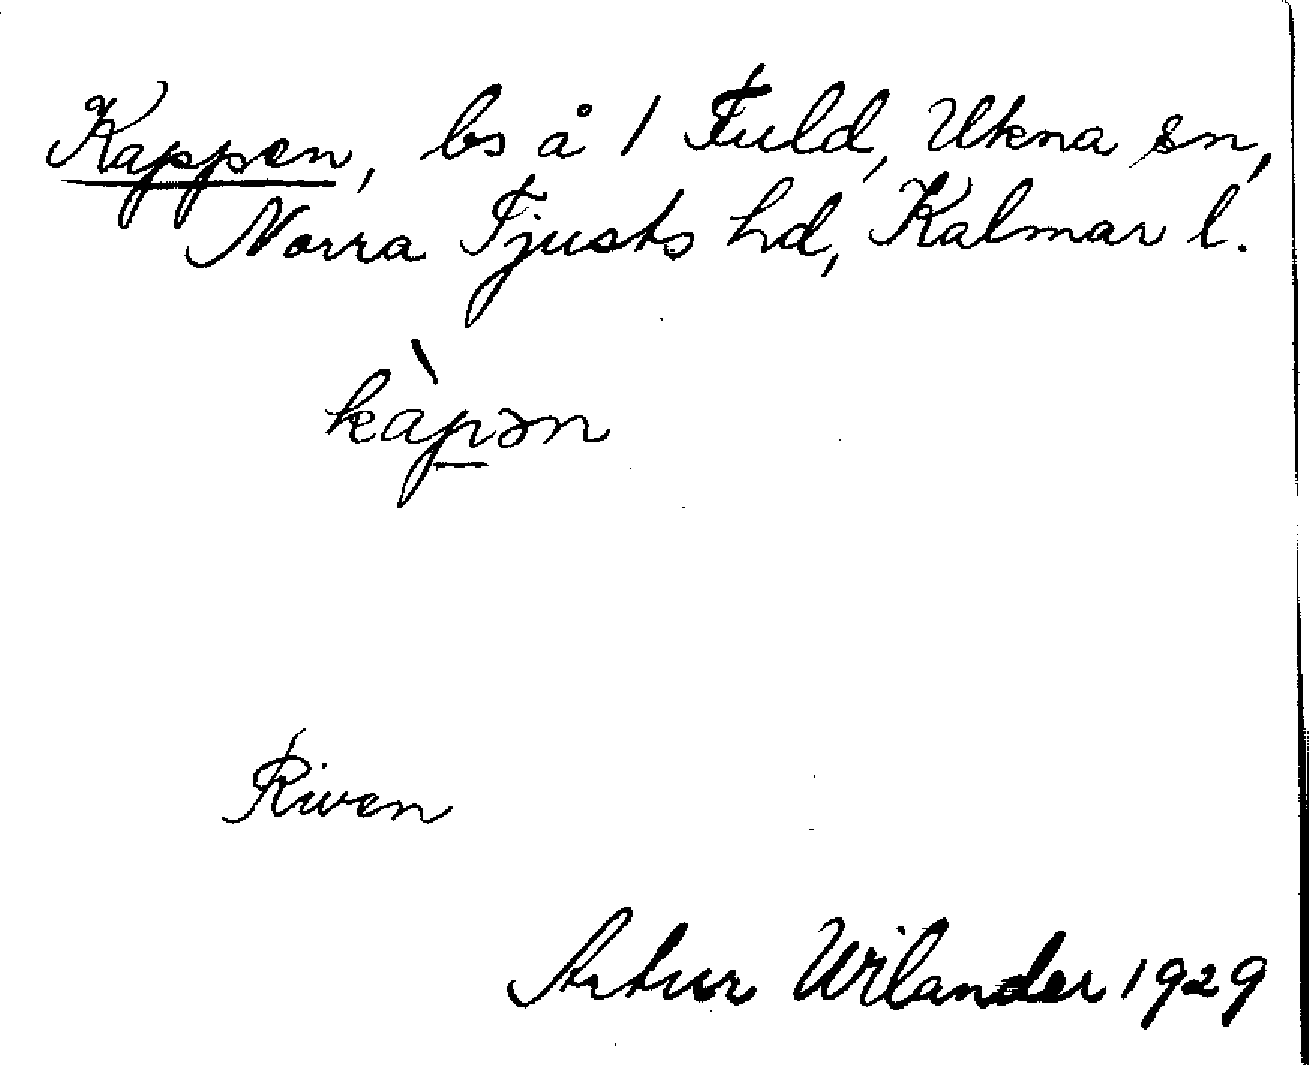 Kappen, bs å 1 Fuld, Ukna sn,
Norra Tjusts hd, Kalmar l.
kàpən
Riven
Artur Wilander 1929